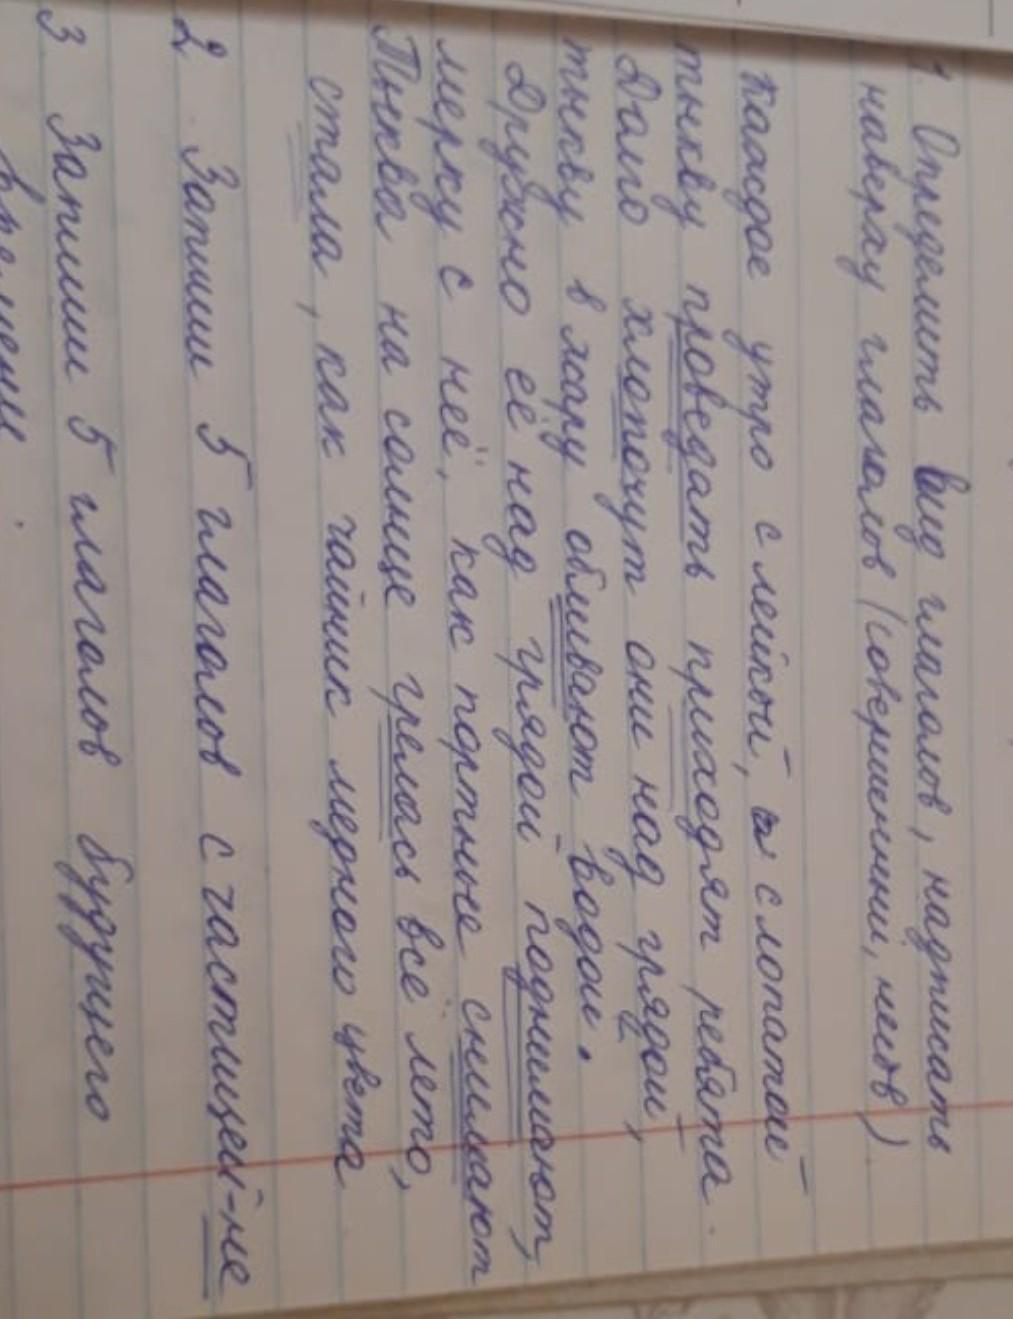 1. Определить вид глаголов, надписать
наверху глаголов (совершенный, несов)
Каждое утро с лейкой, с лопатой
тыкву проведать приходят ребята.
Долго хлопочут они над грядой,
тыкву в жару обливают водой.
Дружно её над грядой поднимают,
мерку с неё, как портные снимают
Тыква на солнце грелась всё лето,
стала, как чайник медного цвета
2. Запиши 5 глаголов с частицей-не
3. Запиши 5 глаголов будущего
времени